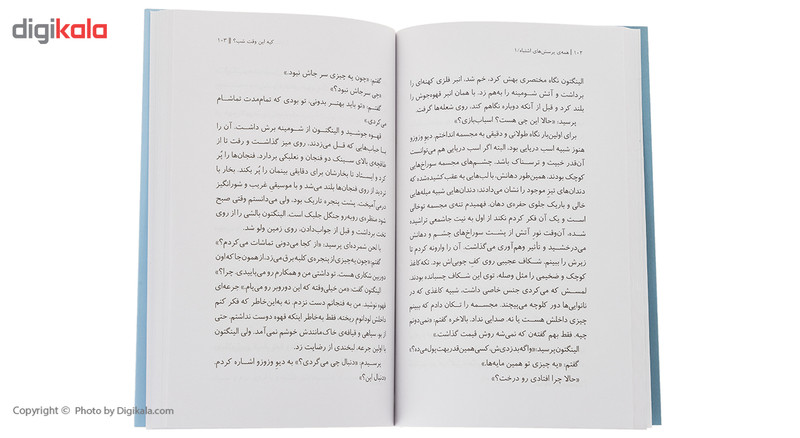 digikala
۱۰۲ | همه‌ی پرسش‌های اشتباه/۱
الینگتون نگاه مختصری بهش کرد. خم شد، انبر فلزی کهنه‌ای را
برداشت و آتش شومینه را به‌هم زد. با همان انبر قهوه‌جوش را
بلند کرد و قبل از آنکه دوباره نگاهم کند، روی شعله‌ها گرفت.
پرسید: «حالا این چی هست؟ اسباب‌بازی؟»
برای اولین‌بار نگاه طولانی و دقیقی به مجسمه انداختم. دیو وزوزو
هنوز شبیه اسب دریایی بود. البته اگر اسب دریایی هم می‌توانست
آن‌قدر خبیث و ترسناک باشد. چشم‌های مجسمه سوراخ‌های
کوچک بودند. همین‌طور دهانش، با لب‌هایی به عقب کشیده‌شده که
دندان‌های تیز موجود را نشان می‌دادند؛ دندان‌هایی شبیه میله‌هایی
خالی و باریک جلوی حفره‌ی دهان. فهمیدم تنه‌ی مجسمه توخالی
است و یک آن فکر کردم نکند از اول به نیت جاشمعی تراشیده
شده، آن‌وقت نور آتش از پشت سوراخ‌های چشم و دهانش
می‌درخشید و تأثیر وهم‌آوری می‌گذاشت. آن را وارونه کردم تا
زیرش را ببینم. شکاف عجیبی روی کف چوبی‌اش بود. یک تکه کاغذ
کوچک و ضخیمی را مثل وصله، توی این شکاف چسبانده بودند.
لمسش که می‌کردی جنس خاصی داشت. شبیه کاغذی که در
نانوایی‌ها دور کلوچه می‌پیچند. مجسمه را تکان دادم که ببینم
چیزی داخلش هست یا نه. صدایی نداد. بالاخره گفتم: «نمی‌دونم
چیه. فقط بهم گفته‌ن که نمی‌شه روش قیمت گذاشت.»
الینگتون پرسید: «واگه بدزدی‌ش، کسی همین قدر بهت پول می‌ده؟»
گفتم: «یه چیزی تو همین مایه‌ها.»
«حالا چرا افتادی رو درخت؟»
کیه این وقت شب؟ || ۱۰۳
گفتم: «چون یه چیزی سر جاش نبود.»
«چی سرجاش نبود؟»
گفتم: «تو باید بهتر بدونی، تو بودی که تمام‌مدت تماشام
می‌کردی.»
قهوه جوشید و الینگتون از شومینه برش داشت. آن را
رفت تا از
طاقچه‌ی بالای سینک دو فنجان و نعلبکی بردارد. فنجان‌ها را پُر
کرد و ایستاد تا بخارشان برای دقایقی بینمان را پُر بکند. بخار با
تردید از روی فنجان‌ها بلند می‌شد و با موسیقی غریب و شورانگیز
درمی‌آمیخت. پشت پنجره تاریک بود، ولی می‌دانستم وقتی صبح
شود منظره‌ی روبه‌رو جنگل جلبک است. الینگتون بالشی را از روی
تخت برداشت و قبل از جواب‌دادن، روی زمین ولو شد.
با لحن شمرده‌ای پرسید: «از کجا می‌دونی تماشات می‌کردم؟»
گفتم: «چون یه چیزی از پنجره‌ی کلبه برق می‌زد. از همون جا که اون
دوربین شکاری هست. تو داشتی من و همکارم رو می‌پاییدی. چرا؟»
الینگتون گفت: «من خیلی‌وقته که این دوروبر رو می‌پام.» جرعه‌ای
قهوه نوشید. من به فنجانم دست نزدم. نه به‌این‌خاطر که فکر کنم
داخلش لودانوم ریخته، فقط به‌خاطر اینکه قهوه دوست نداشتم. حتی
از بو، سیاهی و قیافه‌ی خاک‌مانندش خوشم نمی‌آمد. ولی الینگتون
با اولین جرعه، لبخندی از رضایت زد.
پرسیدم: «دنبال چی می‌گردی؟» به دیو وزوزو اشاره کردم.
«دنبال این؟»
Copyright © Photo by Digikala.com